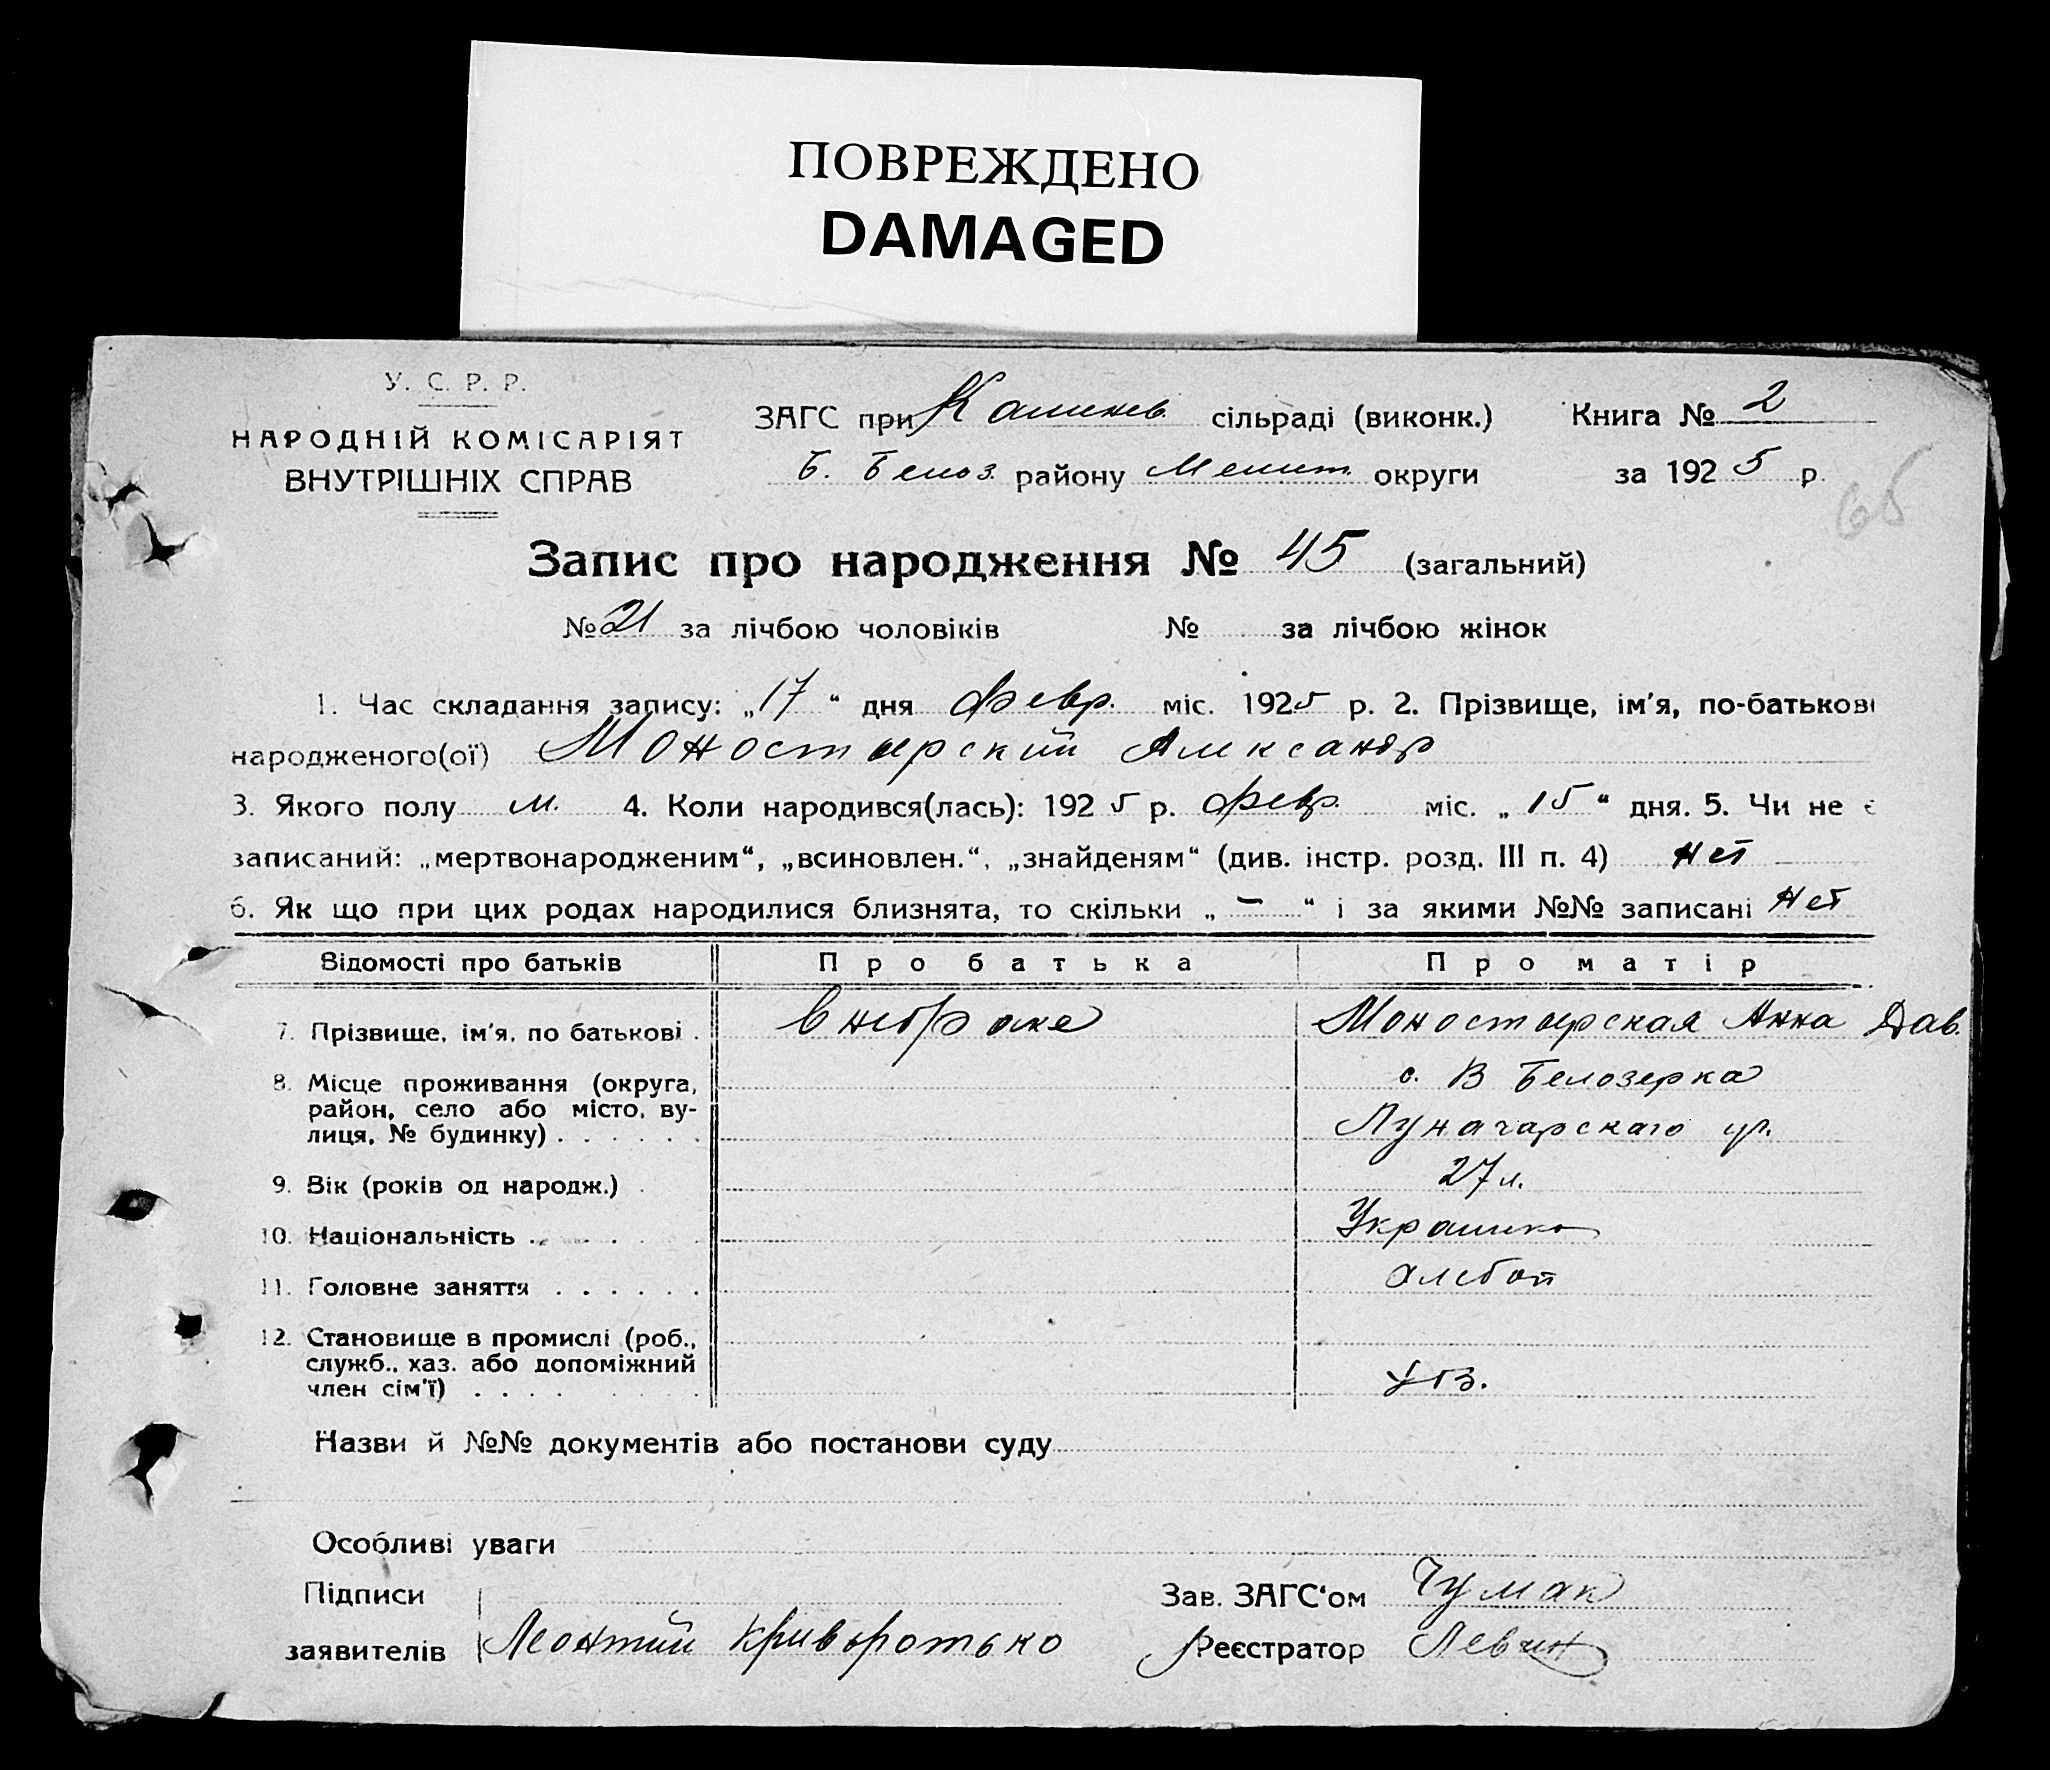 ПОВРЕЖДЕНО
DAMAGED
У. С. Р. Р.
НАРОДНІЙ КОМІСАРІЯТ
ВНУТРІШНІХ СПРАВ
ЗАГС при сільраді (виконк.)
Книга № 2
Б. Белоз. району Мелит. округи
за 1925 р.
65
Запис про народження № 45 (загальний)
№ 21 за лічбою чоловіків № за лічбою жінок
1. Час складання запису: „17“ дня февр. міс. 1925 р. 2. Прізвище, ім'я, по-батькові
народженого(ої) Моностырский Александр
3. Якого полу м. 4. Коли народився(лась): 1925 р. февр. міс. „15“ дня. 5. Чи не є
записаний: „мертвонародженим“, „всиновлен.“, „знайденям“ (див. інстр. розд. III п. 4) нет
6. Як що при цих родах народилися близнята, то скільки „ — “ і за якими №№ записані нет
Відомості про батьків Про батька Про матір
7. Прізвище, ім'я, по батькові . внебраке Моностырская Анна Дав.
8. Місце проживання (округа, с. В Белозерка
район, село або місто, ву-
лиця, № будинку) . . . . . . Луначарскаго ул.
9. Вік (років од народж.) . 27 л.
10. Національність . . . . . Украинка
11. Головне заняття . . . . . .
12. Становище в промислі (роб.,
служб., хаз. або допоміжний
член сім'ї) . . . .
Назви й №№ документів або постанови суду
Особливі уваги
Підписи Зав. ЗАГС'ом Чумак
заявителів Леонтий Криворотько Реєстратор Левин